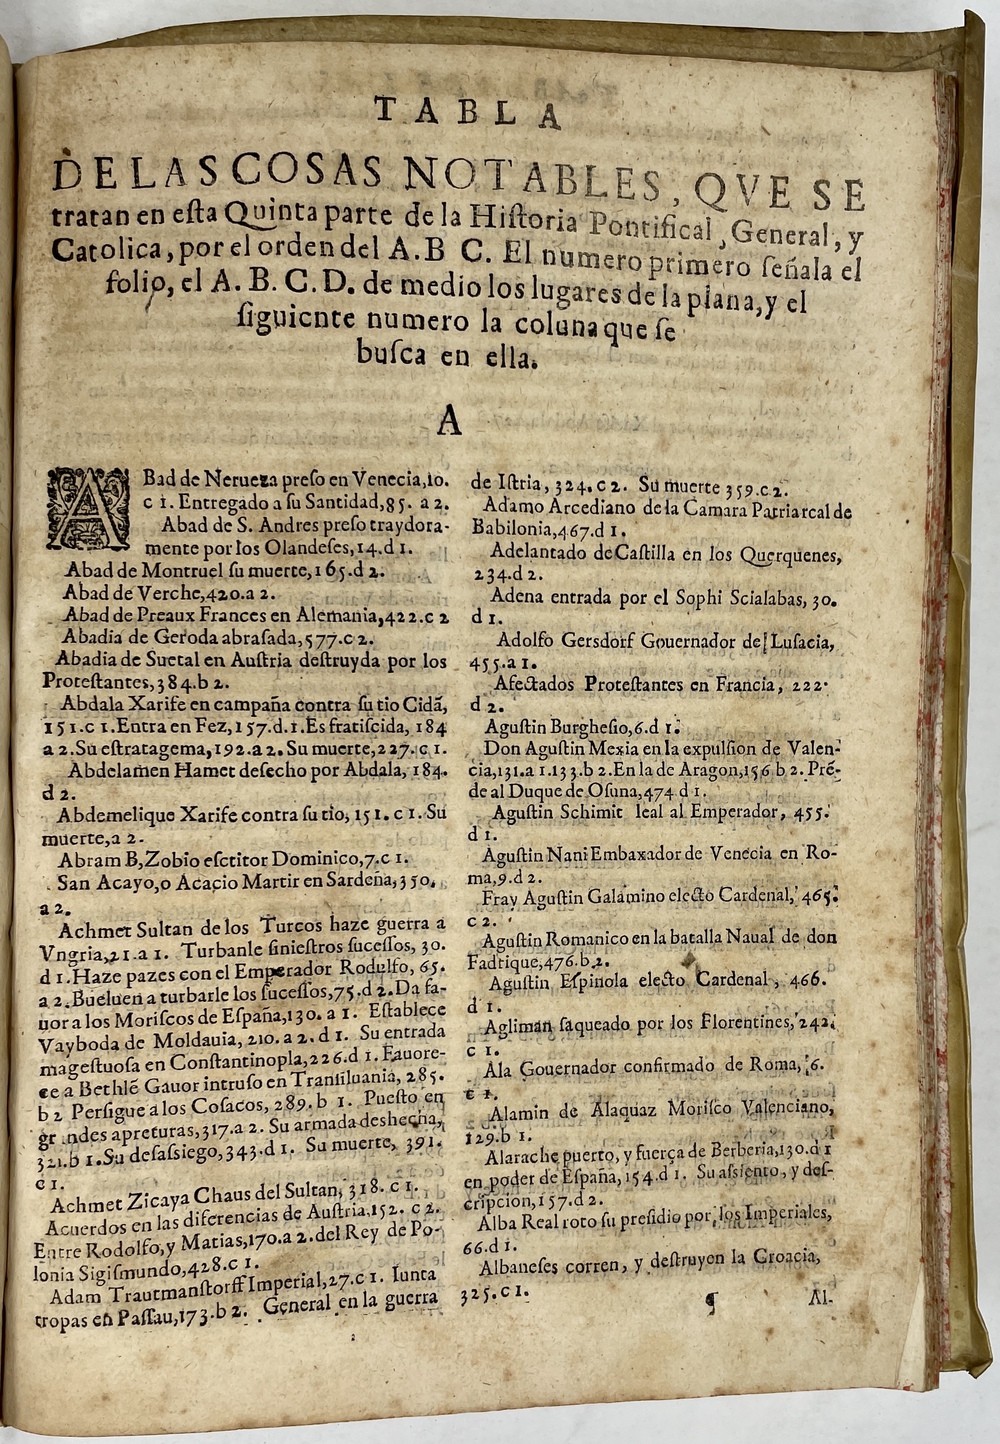 TABLA
DE LAS COSAS NOTABLES, QVE SE
tratan en esta Quinta parte de la Historia Pontifical, General, y
Catolica, por el orden del A.B C. El numero primero señala el
folio, el A. B. C. D. de medio los lugares de la plana, y el
siguiente numero la coluna que se
busca en ella.
A
ABad de Nerueza preso en Venecia, 10.
c 1. Entregado a su Santidad, 85. a 2.
Abad de S. Andres preso traydora-
mente por los Olandeses, 14. d 1.
Abad de Montruel su muerte, 165. d 2.
Abad de Verche, 420. a 2.
Abad de Preaux Frances en Alemania, 422. c 2
Abadia de Geroda abrasada, 577. c 2.
Abadia de Suetal en Austria destruyda por los
Protestantes, 384. b 2.
Abdala Xarife en campaña contra su tio Cidã,
151. c 1. Entra en Fez, 157. d. 1. Es fratiscida, 184
a 2. Su estratagema, 192. a 2. Su muerte, 227. c 1.
Abdelamen Hamet desecho por Abdala, 184.
d 2.
Abdemelique Xarife contra su tio, 151. c 1. Su
muerte, a 2.
Abram B, Zobio esctitor Dominico, 7. c 1.
San Acayo, o Acacio Martir en Sardeña, 350.
a 2.
Achmet Sultan de los Turcos haze guerra a
Vngria, 21. a 1. Turbanle siniestros sucessos, 30.
d 1. Haze pazes con el Emperador Rodulfo, 65.
a 2. Bueluen a turbarle los sucessos, 75. d 2. Da fa-
uor a los Moriscos de España, 130. a 1. Establece
Vayboda de Moldauia, 210. a 2. d 1. Su entrada
magestuosa en Constantinopla, 226. d 1. Fauore-
ce a Bethlẽ Gauor intruso en Transiluania, 285.
b 2 Persigue a los Cosacos, 289. b 1. Puesto en
grandes apreturas, 317. a 2. Su armada deshecha,
321. b 1. Su desassiego, 343. d 1. Su muerte, 391.
c 1.
Achmet Zicaya Chaus del Sultan, 318. c 1.
Acuerdos en las diferencias de Austria. 152. c 2.
Entre Rodolfo, y Matias, 170. a 2. del Rey de Po-
lonia Sigismundo, 428. c 1.
Adam Trautmanstorff Imperial, 27. c 1. Iunta
tropas en Passau, 173. b 2. General en la guerra
de Istria, 324. c 2. Su muerte 359. c 2.
Adamo Arcediano de la Camara Patriarcal de
Babilonia, 467. d 1.
Adelantado de Castilla en los Querquenes,
234. d 2.
Adena entrada por el Sophi Scialabas, 30.
d 1.
Adolfo Gersdorf Gouernador de Lusacia,
455. a 1.
Afectados Protestantes en Francia, 222.
d 2.
Agustin Burghesio, 6. d 1.
Don Agustin Mexia en la expulsion de Valen-
cia, 131. a 1. 133. b 2. En la de Aragon, 156 b 2. Prẽ-
de al Duque de Osuna, 474 d 1.
Agustin Schimit leal al Emperador, 455.
d 1.
Agustin Nani Embaxador de Venecia en Ro-
ma, 9. d 2.
Fray Agustin Galamino electo Cardenal, 465.
c 2.
Agustin Romanico en la batalla Naual de don
Fadrique, 476. b 2.
Agustin Espinola electo Cardenal, 466.
d 1.
Agliman saqueado por los Florentines, 242.
c 1.
Ala Gouernador confirmado de Roma, 6.
c 1.
Alamin de Alaquaz Morisco Valenciano,
129. b 1.
Alarache puerto, y fuerça de Berberia, 130. d 1
en poder de España, 154. d 1. Su assiento, y des-
cripcion, 157. d 2.
Alba Real roto su presidio por los Imperiales,
66. d 1.
Albaneses corren, y destruyen la Croacia,
325. c 1.
¶ Al-